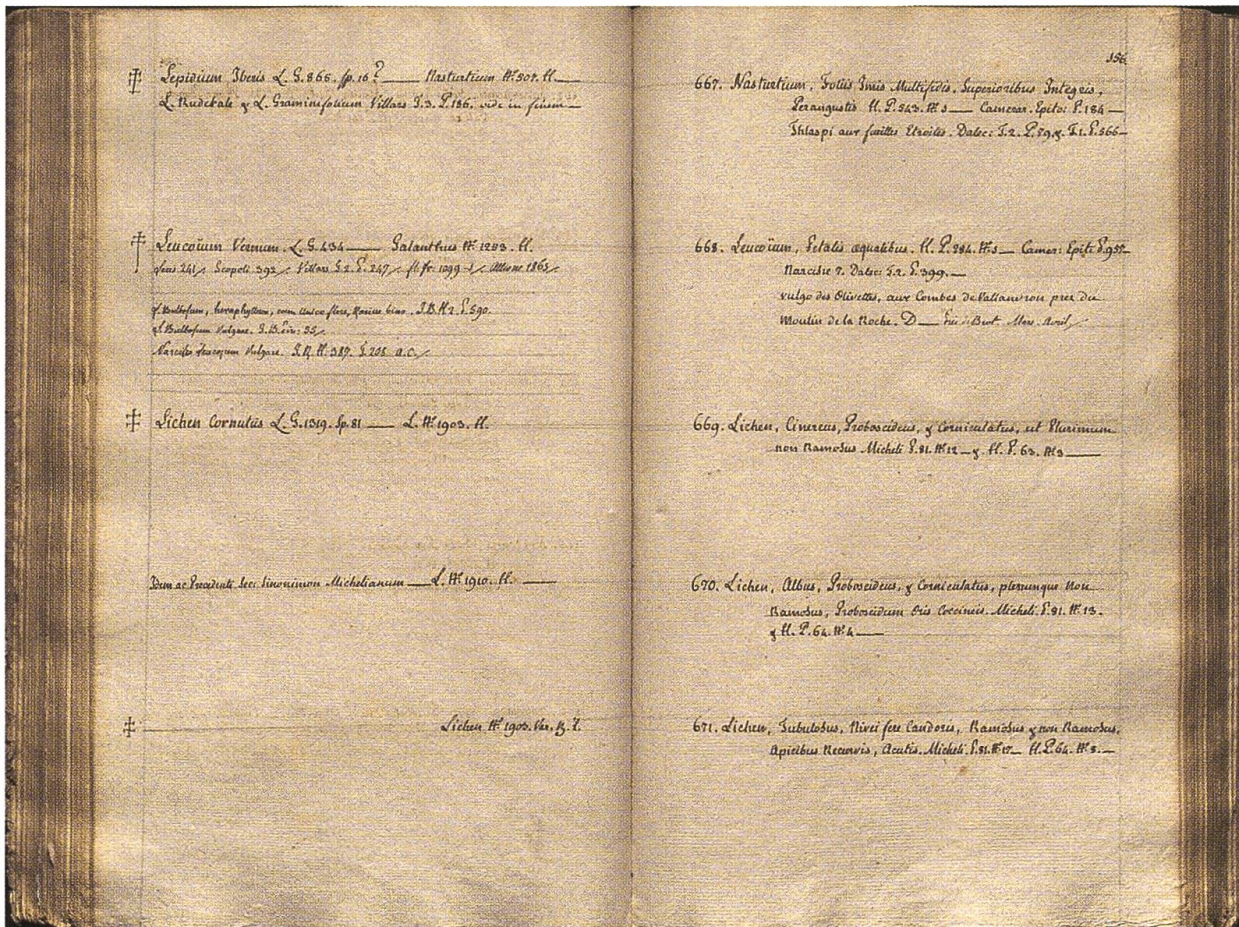 ‡ Lepidium Iberis L. G. 866. sp. 16? ___ Nasturtium N.º 507. H. ___
L. Ruderale & L. Graminifolium Villars T. 3. P. 186. vide in finem ___
‡ Leucoium Vernum. L. G. 434 ___ Galanthus N.º 1253. H.
241 Scopoli. 392 Villars T. 2. P. 247 fl. fr. 1099 Allione 1865
Bulbosum, hexaphyllum, cum unico flore, rarius bino. J. B. H. 2. P. 590.
Bulbosum Vulgare. 55
Narcisso Leucojum Vulgare. J. R. H. 387. T. 208 a. c.
‡ Lichen Cornutus L. G. 1319. Sp. 81 ___ L. N.º 1903. H.
Idem ac Precedenti. Sec: Sinonimon Michelianum ___ L. N.º 1910. H. ___
‡ Lichen N.º 1903. Var. B. Z.
156
667. Nasturtium, Foliis Imis Multifidis, Superioribus Integris,
Perangustis H. P. 543. N.º 3 ___ Camerar. Epito: P. 184 ___
Thlaspi aux fueilles Etroites. Dalec: T. 2. P. 59. & T. 1. P. 566 ___
668. Leucoium, Petalis æqualibus. H. P. 284. N.º 3 ___ Camer: Epit: P. 957
Narcisse 7. Dalec: T. 2. P. 399. ___
vulgo des Olivettes, aux Combes de Vallanvron prez du
Moulin de la Roche. D ___ Brot. Mars. Avril
669. Lichen, Cinereus, Proboscideus, & Corniculatus, ut Plurimum
non Ramosus Micheli P. 81. N.º 12 ___ & H. P. 63. N.º 3 ___
670. Lichen, Albus, Proboscideus, & Corniculatus, plerumque Non
Ramosus, Proboscidum Oris Coccineis. Micheli. P. 81. N.º 13.
& H. P. 64. N.º 4 ___
671. Lichen, Tubulosus, Nivei fere Candoris, Ramosus & non Ramosus,
Apicibus Recurvis, Acutis. Micheli. P. 81. N.º 17 ___ H. P. 64. N.º 5. ___